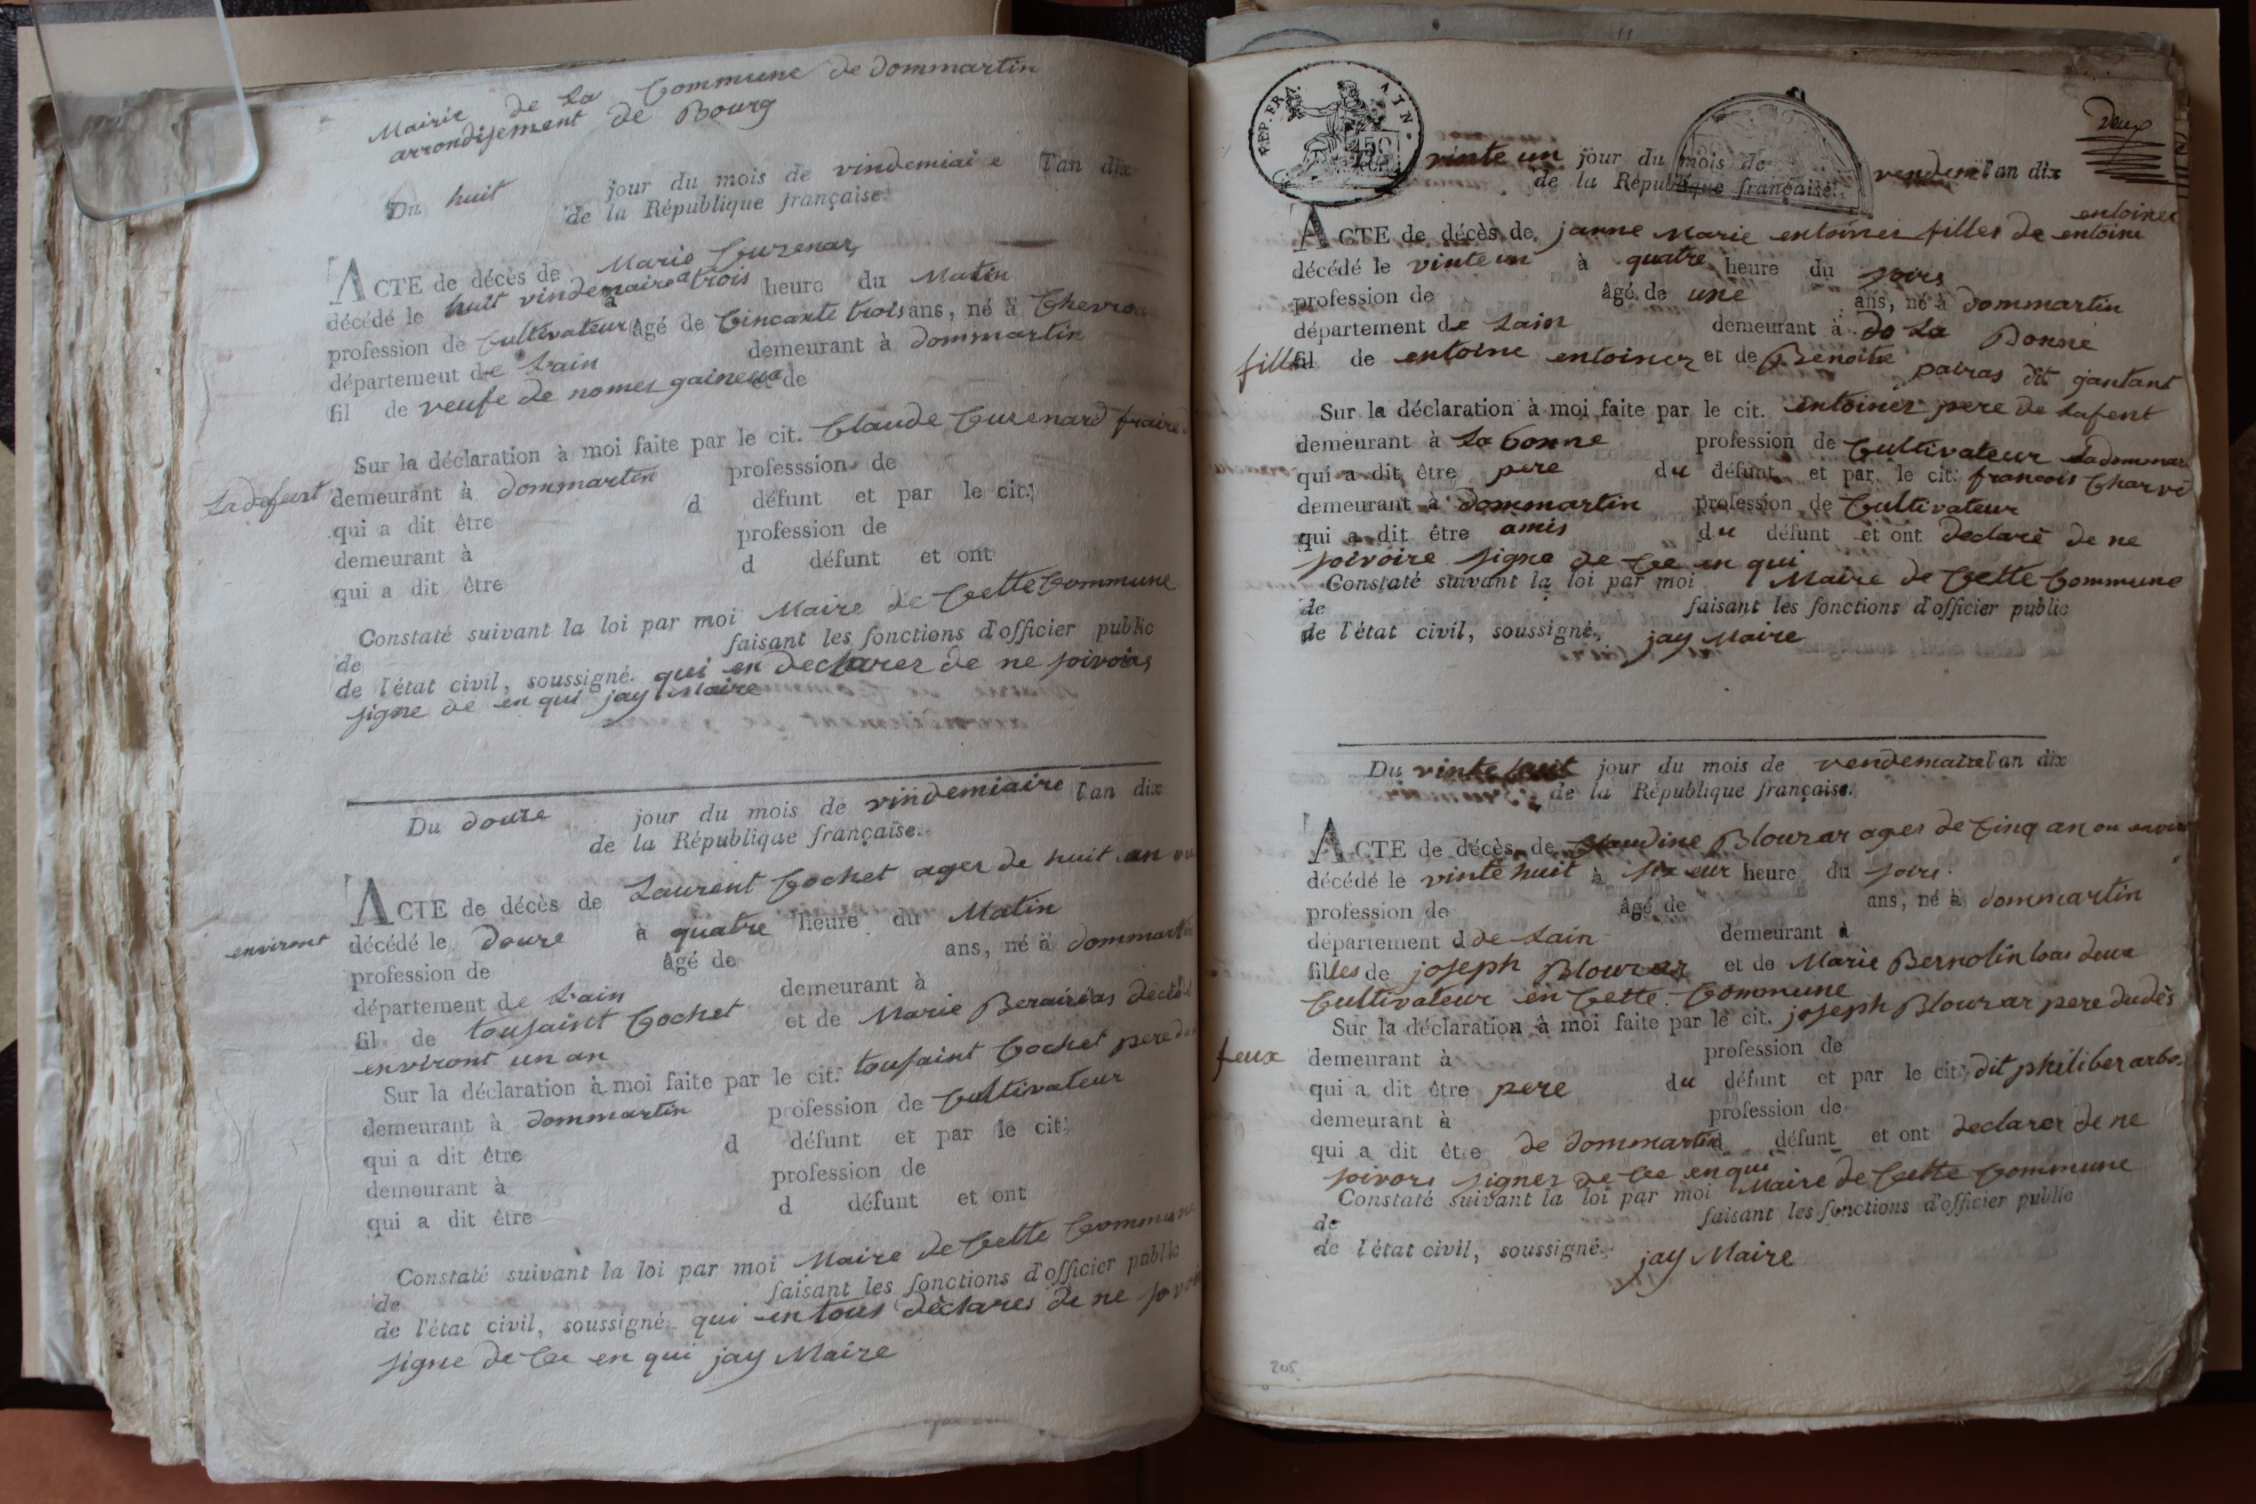 Mairie de La Commune de dommartin
arrondisement de Bourg
Du huit jour du mois de vindemiai e l'an dix
de la République française.
ACTE de décès de Marie Cuzenar
décédé le huit vindemaire à trois heure du Matin
profession de Cultivateur âgé de Cincante trois ans, né à Chevrou
département de Lain demeurant à dommartin
fil de veufe de nomer gaineux et de
Sur la déclaration à moi faite par le cit. Claude Cuzenard fraire
Ladefunt demeurant à dommartin professsion de
qui a dit être d défunt et par le cit.
demeurant à profession de
qui a dit être d défunt et ont
Constaté suivant la loi par moi Maire de Cette Commune
de faisant les fonctions d'officier public
de l'état civil, soussigné. qui en declarer de ne soivoir
signe de en qui jay Maire
Du douze jour du mois de vindemiaire l'an dix
de la République française.
ACTE de décès de Laurent Cochet ager de huit an ou
environt décédé le douze à quatre heure du Matin
profession de âgé de ans, né à dommartin
département de Lain demeurant à
fil de tousaint Cochet et de Marie
environt un an
Sur la déclaration à moi faite par le cit. tousaint Cochet pere
demeurant à dommartin profession de Cultivateur
qui a dit être d défunt et par le cit.
demeurant à profession de
qui a dit être d défunt et ont
Constaté suivant la loi par moi Maire de Cette Commune
de faisant les fonctions d'officier public
de l'état civil, soussigné. qui en tous déclares de ne
signe de Ce en qui jay Maire
REP. FRA. ATN.
deux
vinte un jour du mois de vendem l'an dix
de la République française.
entoiner
ACTE de décès de janne Marie entoiner filles de entoine
décédé le vinte un à quatre heure du soirs
profession de âgé de une ans, né à dommartin
département de Lain demeurant à do La Bonne
fille fil de entoine entoiner et de Benoite pairas dit gantant
Sur la déclaration à moi faite par le cit. entoiner pere de Lafent
demeurant à La bonne profession de Cultivateur
qui a dit être pere du défunt et par le cit. francois Charvé
demeurant à dommartin profession de Cultivateur
qui a dit être amis du défunt et ont declaré de ne
soivoire signe de Ce en qui
Constaté suivant la loi par moi Maire de Cette Commune
de faisant les fonctions d'officier public
de l'état civil, soussigné. jay Maire
Du vinte huit jour du mois de vendemaire l'an dix
de la République française.
ACTE de décès de Claudine Blourar ager de Cinq an ou
décédé le vinte huit à six eur heure du soirs
profession de âgé de ans, né à dommartin
département d de Lain demeurant à
filles de joseph Blourar et de Marie Bernolin tous deux
Cultivateur en Cette Commune
Sur la déclaration à moi faite par le cit. joseph Blourar pere dudés
feux demeurant à profession de
qui a dit être pere du défunt et par le cit. dit philiber
demeurant à profession de
qui a dit être de dommartin d défunt et ont declarer de ne
soivore signer de Ce en qui
Constaté suivant la loi par moi Maire de Cette Commune
de faisant les fonctions d'officier public
de l'état civil, soussigné. jay Maire
205